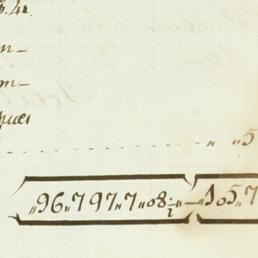 n–
m–
ques
„5
„96„797„7„08½–„105„7